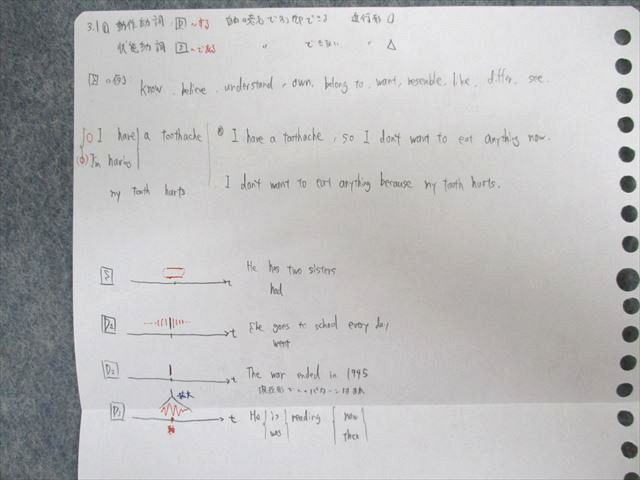 3.1① 動作動詞 D ～する 自分の意志で 進行形 ○
状態動詞 S ～である 〃 できない 〃 △
S の例) know, believe, understand, own, belong to, want, resemble, like, differ, see.
○ I have a toothache
(○) I'm having
my tooth hurts
I have a toothache, so I don't want to eat anything now.
I don't want to eat anything because my tooth hurts.
S t He has two sisters
had
t She goes to school every day
went
D₂ t The war ended in 1945
現在形
拡大
D₁ t He is reading now
was then